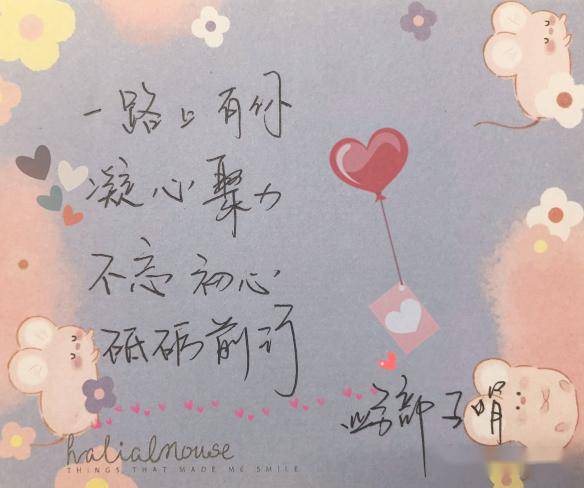 一路上有你
凝心聚力
不忘初心
砥砺前行
halialmouse
THINGS THAT MADE ME SMILE